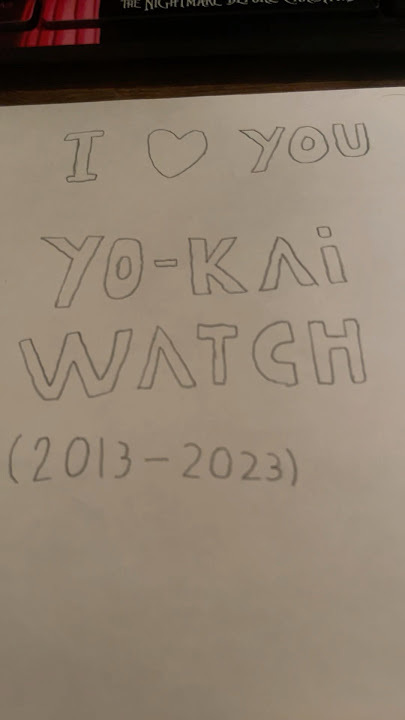 THE NIGHTMARE BEFORE
I ♡ YOU
YO-KAi
WATCH
(2013-2023)